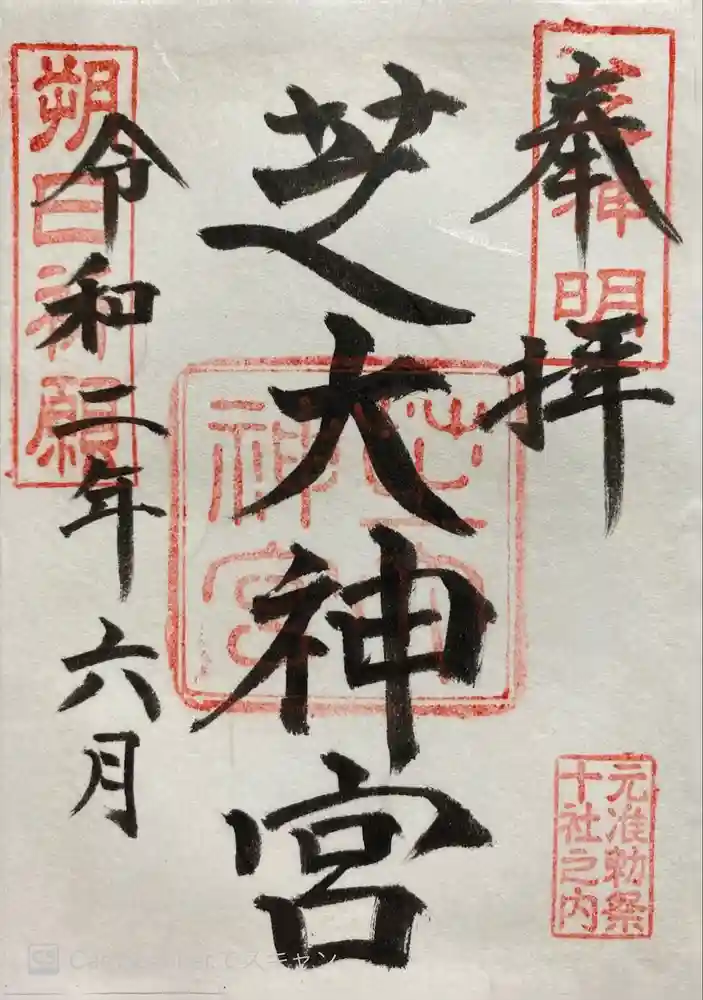 奉拝
芝神明
元准勅祭
十社之内
芝大神宮
芝大
神宮
令和二年六月
朔日祈願
CamScanner でスキャン